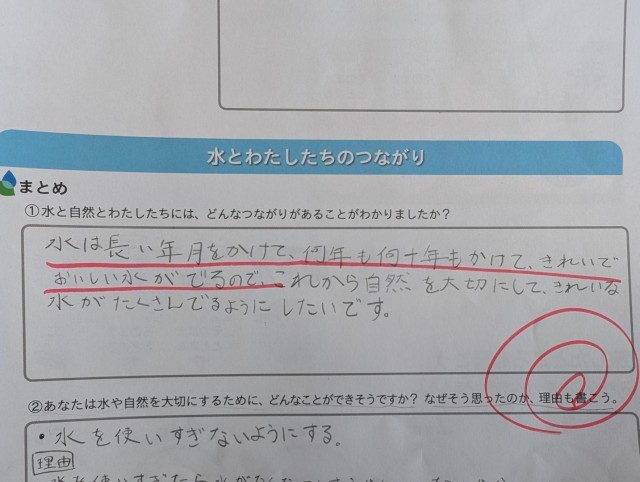 水とわたしたちのつながり
まとめ
①水と自然とわたしたちには、どんなつながりがあることがわかりましたか？
水は長い年月をかけて、何年も何十年もかけて、きれいで
おいしい水がでるので、これから自然を大切にして、きれいな
水がたくさんでるようにしたいです。
②あなたは水や自然を大切にするために、どんなことができそうですか？なぜそう思ったのか、理由も書こう。
・水を使いすぎないようにする。
理由